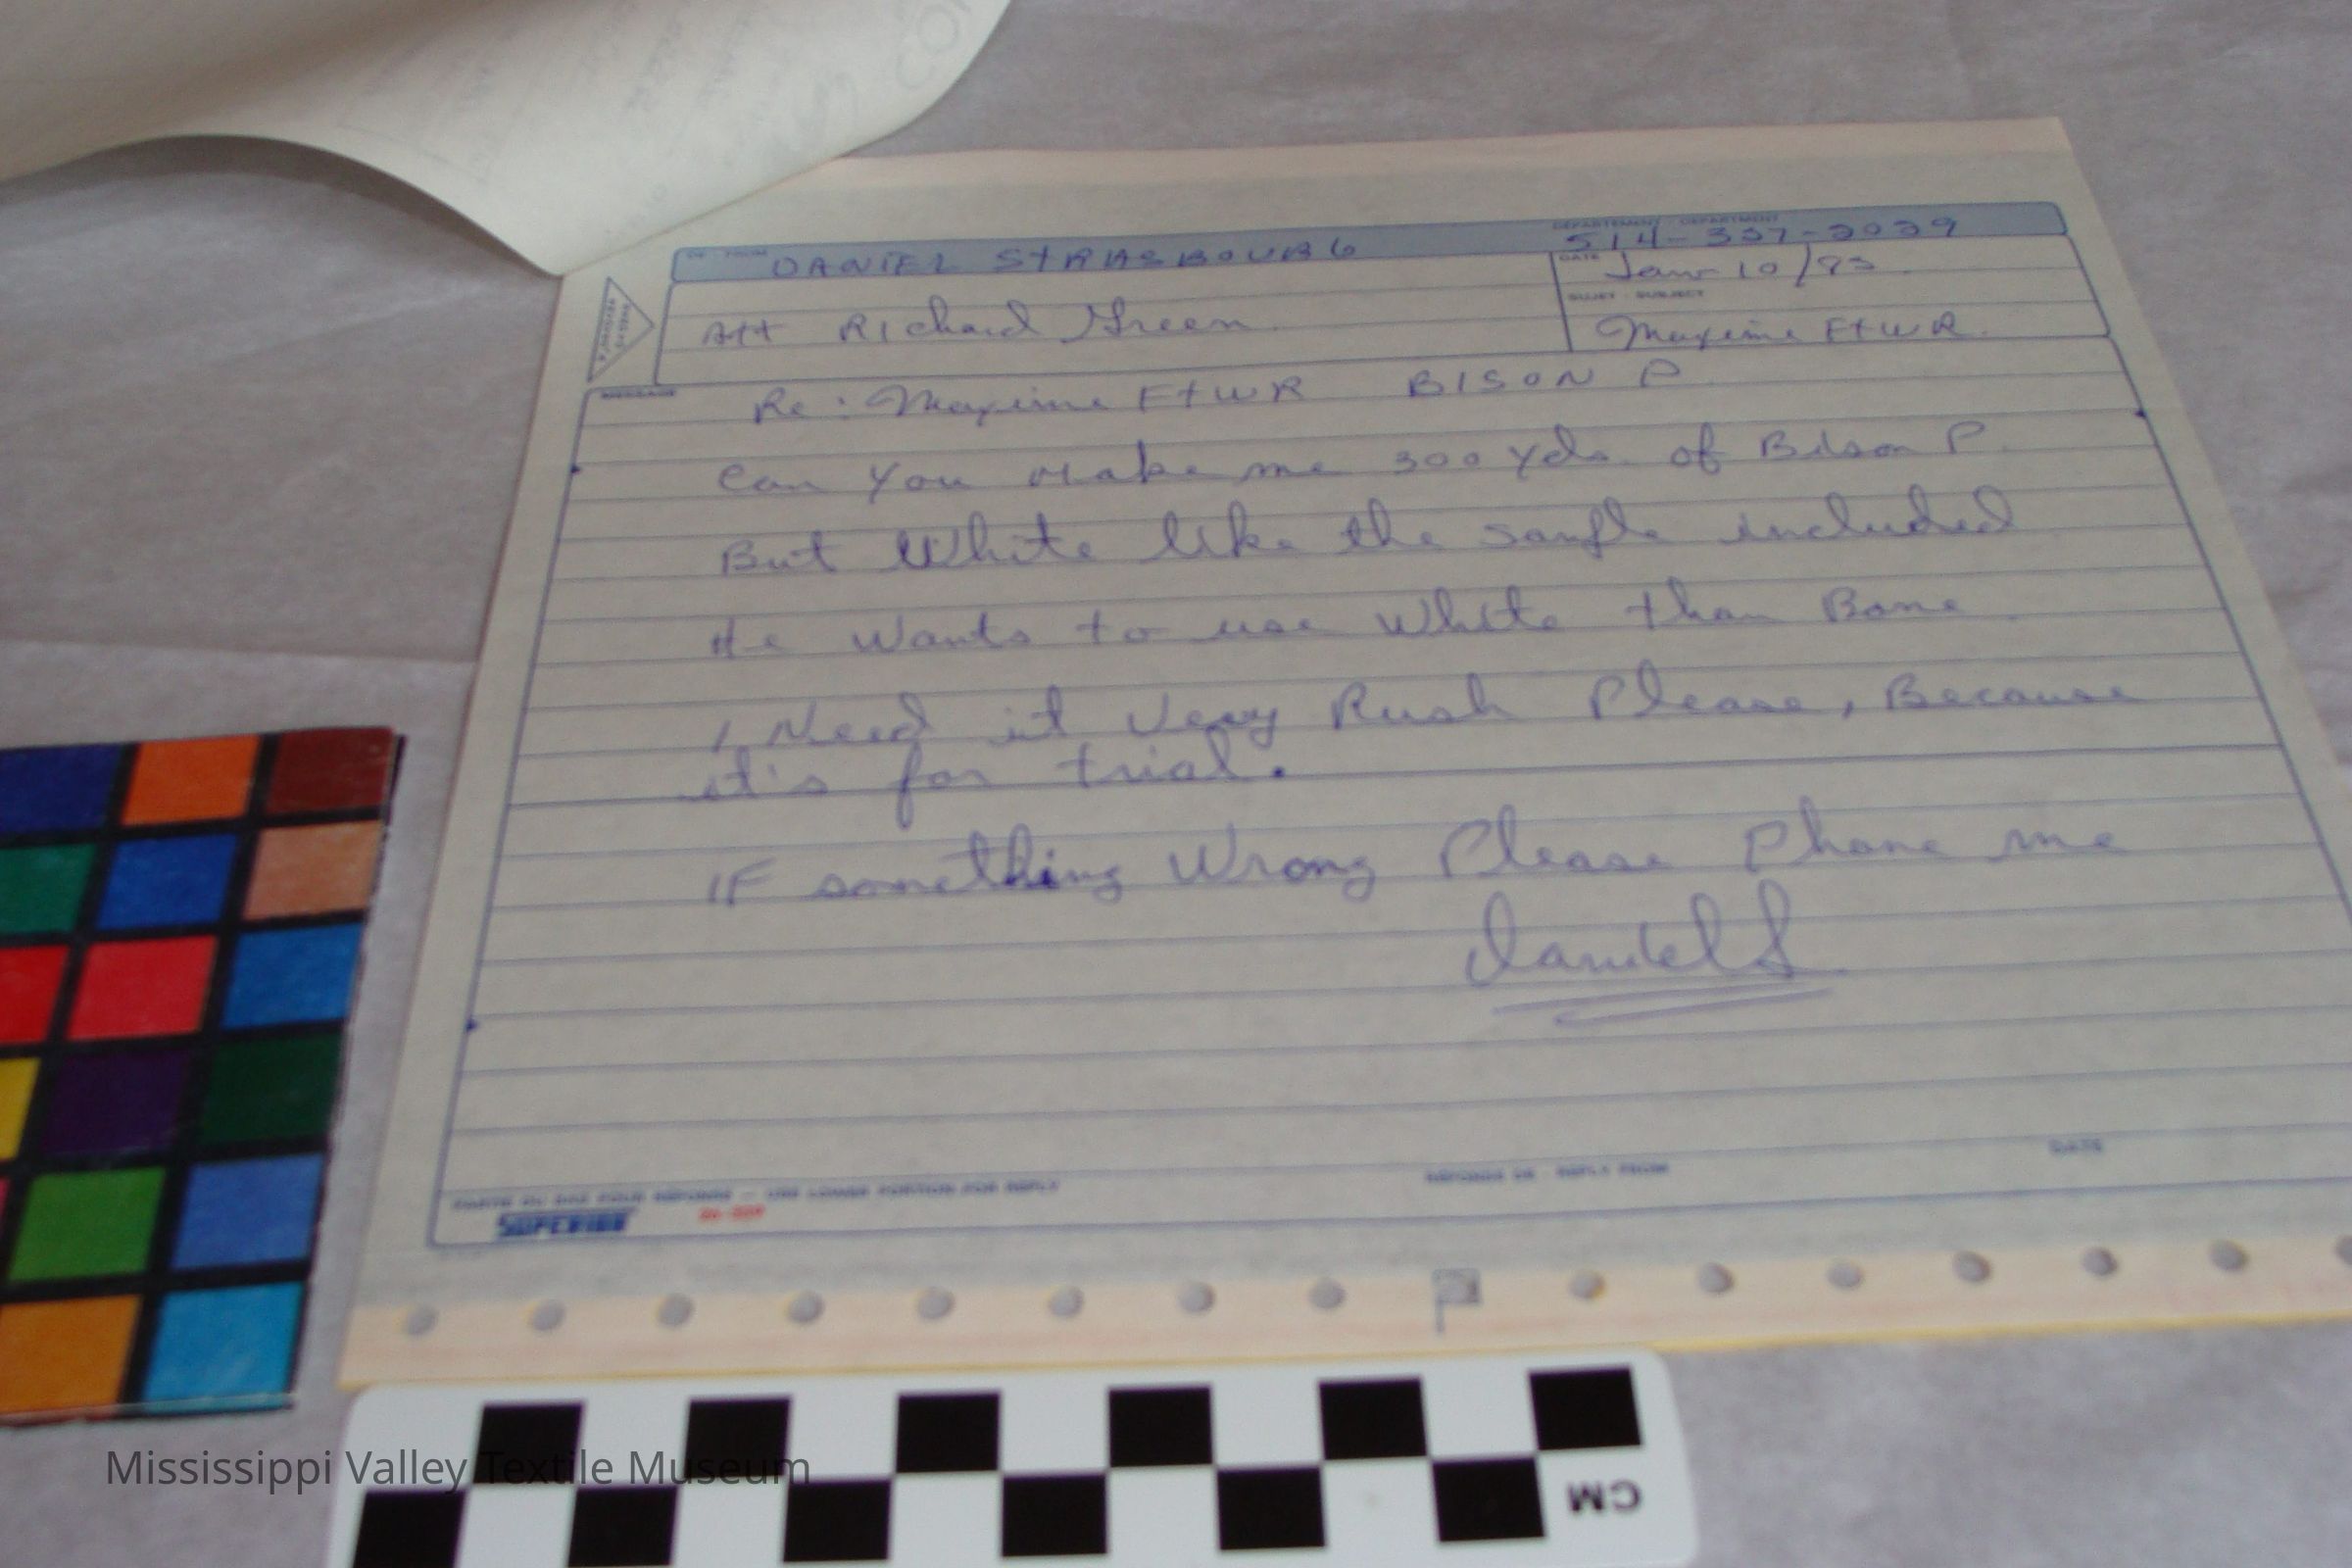 DE - FROM DANIEL STRASBOURG
DEPARTEMENT - DEPARTMENT
514-337-2029
Att Richard Green
DATE Jan 10/83
SUJET - SUBJECT
Maxime FtWR.
MESSAGE
Re: Maxime FtWR BISON P
Can You Make me 300 Yds. of Bison P.
But White like the sample included
He Wants to use White than Bone.
I Need it Very Rush Please, Because
it's for trial.
IF something Wrong Please Phone me
Daniel S
PARTIE DU BAS POUR REPONSE - USE LOWER PORTION FOR REPLY
REPONSE DE - REPLY FROM
DATE
SUPERIOR
CM
Mississippi Valley Textile Museum